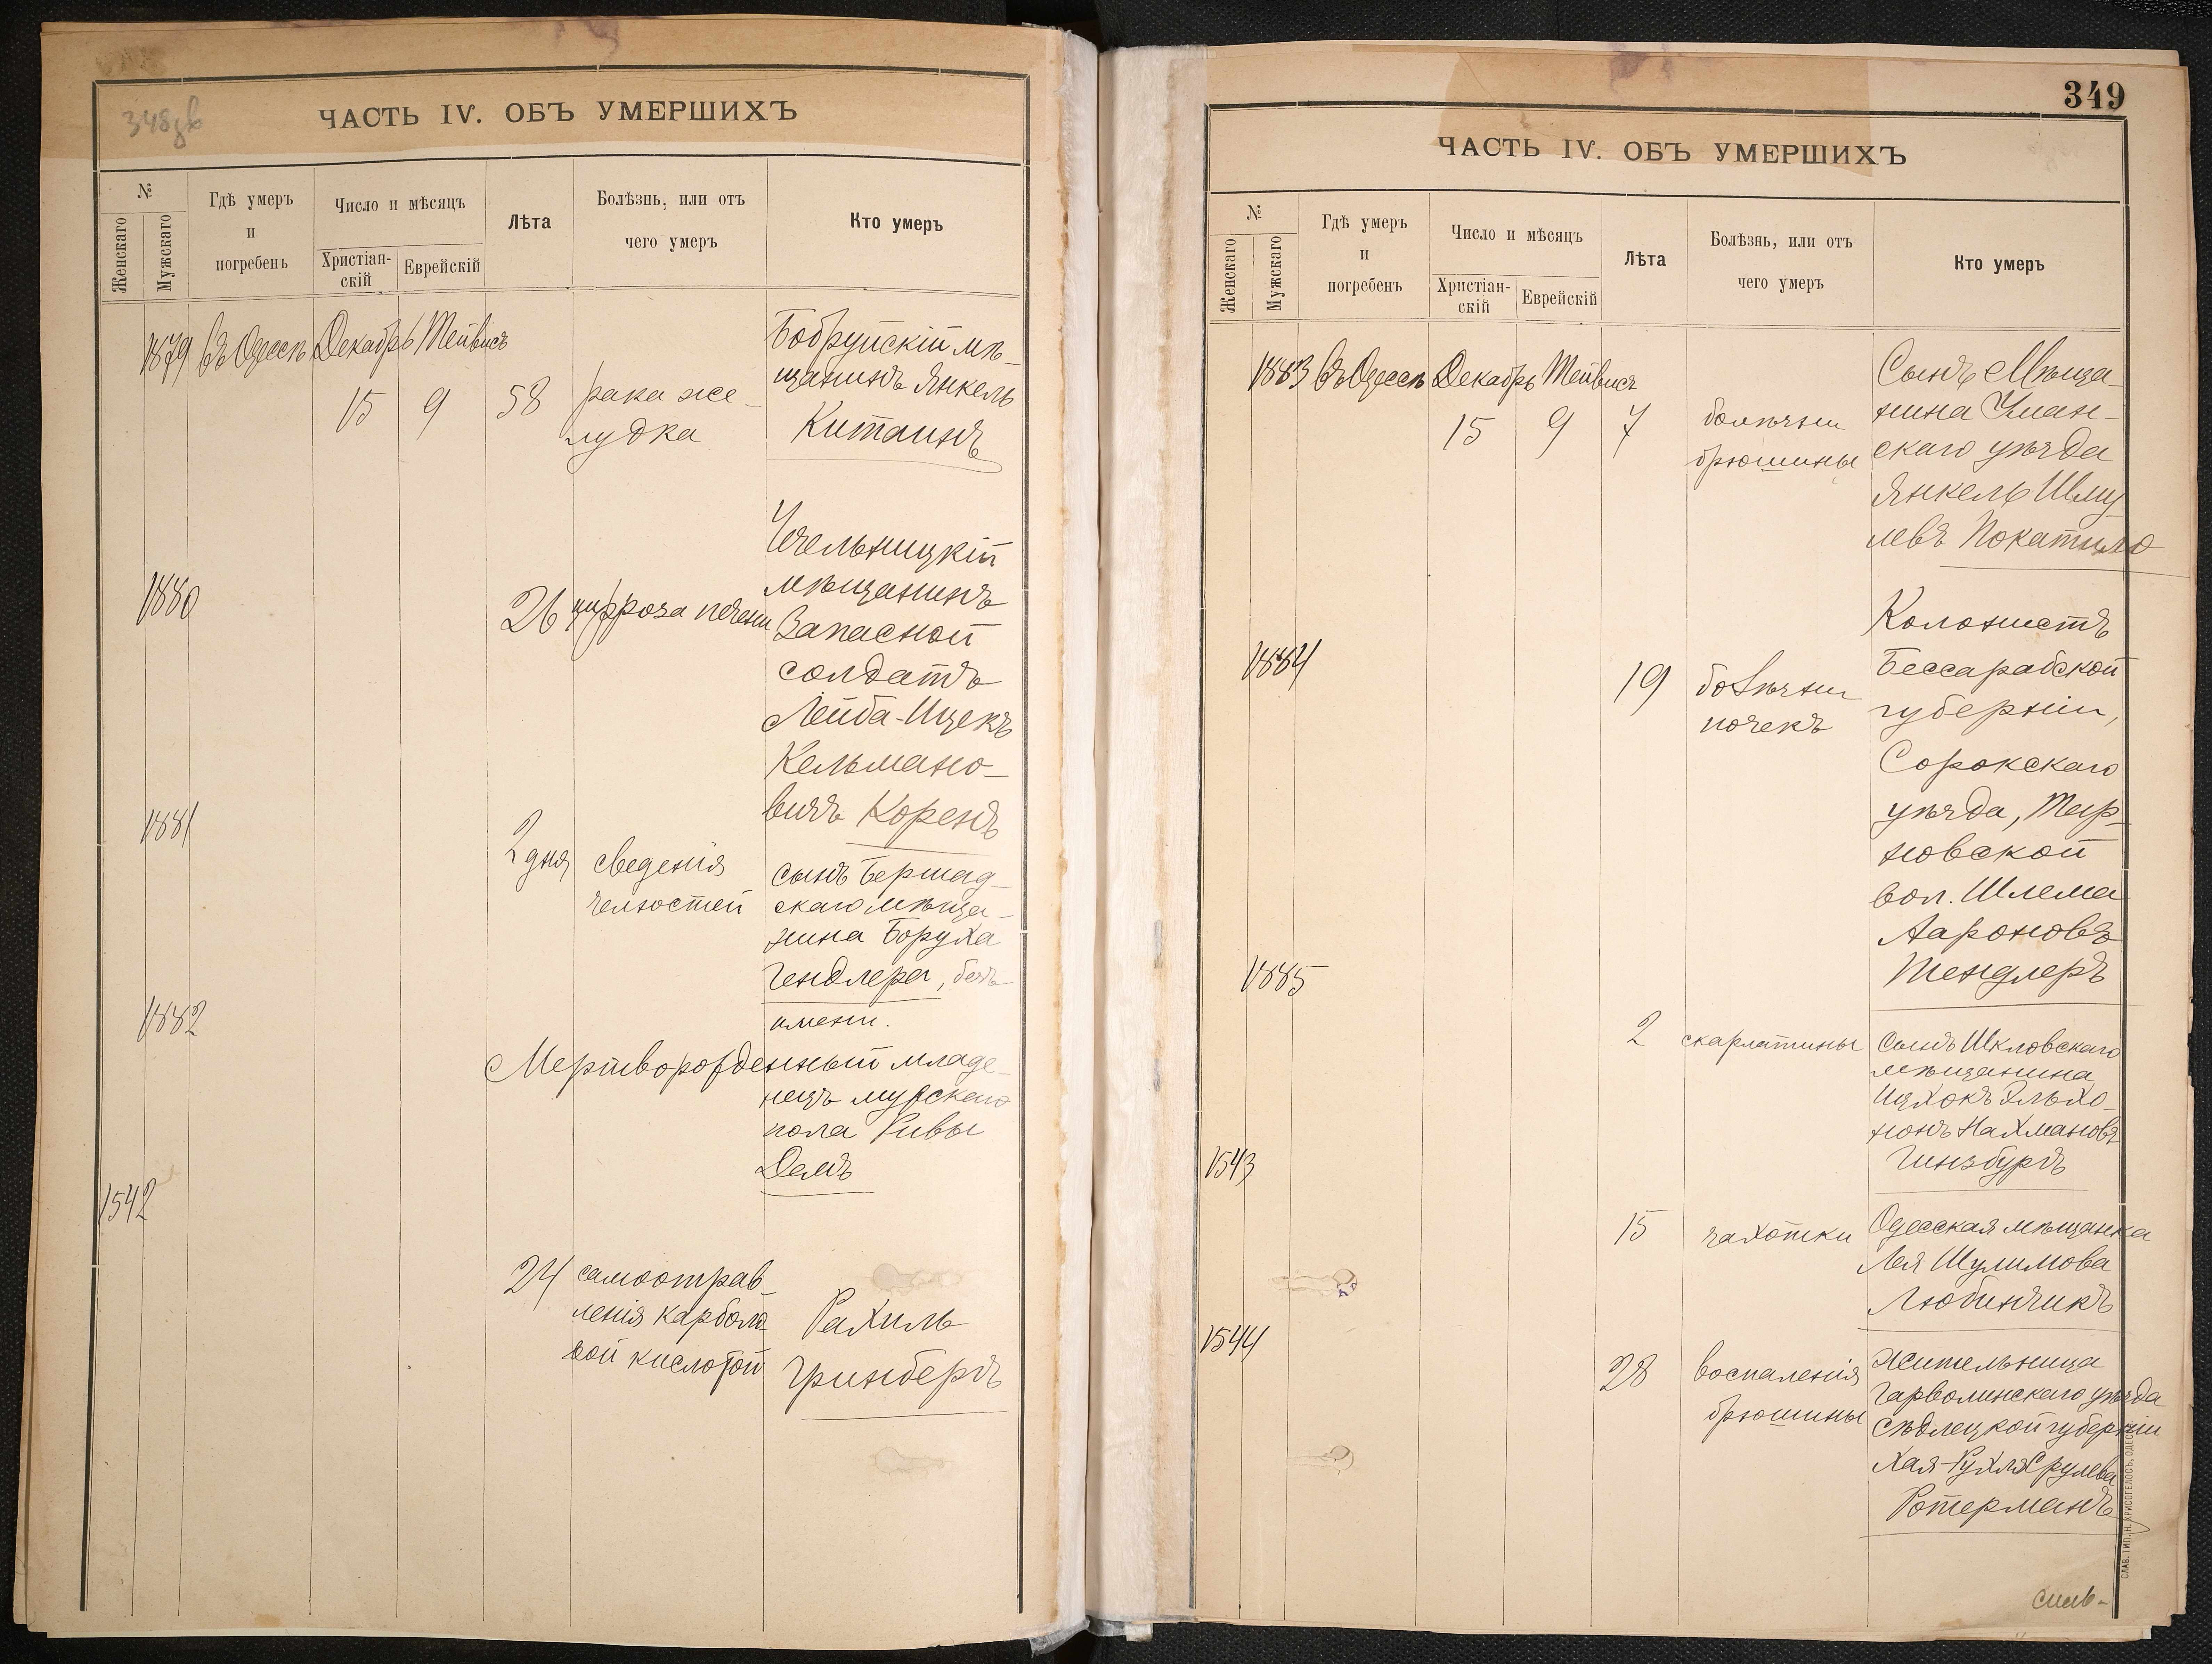 348об
ЧАСТЬ IV. ОБЪ УМЕРШИХЪ
№
Женскаго
Мужскаго
Гдѣ умеръ
и
погребенъ
Число и мѣсяцъ
Христіан-
скій
Еврейскій
Лѣта
Болѣзнь, или отъ
чего умеръ
Кто умеръ
1879 Въ Одессѣ Декабрь Тейвисъ
15 9 58
рака же-
лудка
Бобруйскій мѣ-
щанинъ Янкель
Китаинъ
1880
26
цирроза печени
Чечельницкій
мѣщанинъ
Запасной
солдатъ
Лейба-Ицекъ
Кельмано-
вичъ Коренъ
1881
2 дня
сведенія
челюстей
сынъ Бершад-
скаго мѣща-
нина Боруха
Гендлера, безъ
имени.
1882
Мертворожденный младе-
нецъ мужскаго
пола Ривы
1542
24
самоотрав-
ленія карболо-
вой кислотой
Рахиль
Гринбергъ
349
ЧАСТЬ IV. ОБЪ УМЕРШИХЪ
№
Женскаго
Мужскаго
Гдѣ умеръ
и
погребенъ
Число и мѣсяцъ
Христіан-
скій
Еврейскій
Лѣта
Болѣзнь, или отъ
чего умеръ
Кто умеръ
1883 Въ Одессѣ Декабрь Тейвисъ
15 9 7
болѣзни
брюшины
Сынъ Мѣща-
нина Уман-
скаго уѣзда
Янкель Шму
левъ Покатило
1884
19
болѣзни
почекъ
Колонистъ
Бессарабской
губерніи,
Сорокскаго
уѣзда, Тыр-
новской
вол. Шлема
Аароновъ
Тендлеръ
1885
2
скарлатины
Сынъ Шкловскаго
мѣщанина
Ицхокъ Эльхо-
нонъ Нахмановъ
Гинзбургъ
1543
15
чахотки
Одесская мѣщанка
Лея Шулимова
Любинчикъ
1544
28
воспаленія
брюшины
жительница
Гарволинскаго уѣзда
Сѣдлецкой губерніи
Хая-Рухля Срулева
Ротерманъ
СЛАВ. ТИП. Н. ХРИСОГЕЛОСЪ, ОДЕССА